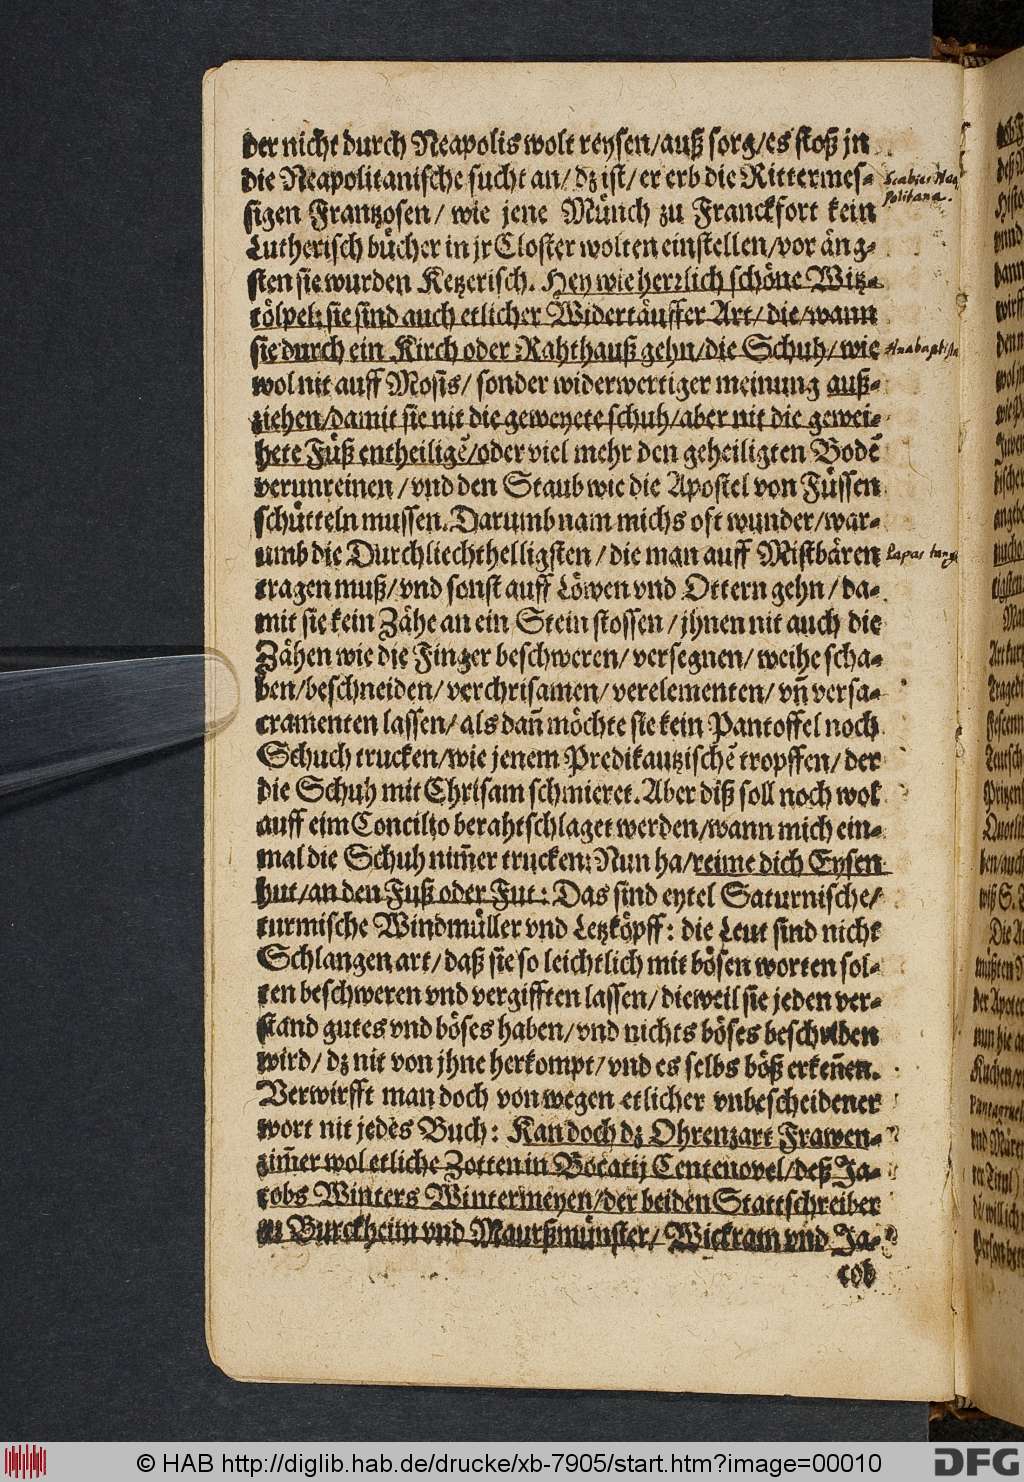 der nicht durch Neapolis wolt reysen/auß sorg/es stoß jn
die Neapolitanische sucht an/ dz ist/ er erb die Rittermes-
sigen Frantzosen/ wie jene Münch zu Franckfort kein
Lutherisch bücher in jr Closter wolten einstellen/vor äng-
sten sie wurden Ketzerisch. Hey wie herzlich schöne Witz-
tölpel: sie sind auch etlicher Widertäuffer Art/ die/wann
sie durch ein Kirch oder Rahthauß gehn/die Schuh/ wie
wol nit auff Mosis/ sonder widerwertiger meinung auß-
ziehen/damit sie nit die geweyete schuh/aber nit die gewei-
hete Füß entheiligẽ/oder viel mehr den geheiligten Bodẽ
verunreinen/vnd den Staub wie die Apostel von Füssen
schütteln mussen. Darumb nam michs oft wunder/war-
umb die Durchliechthelligsten/ die man auff Mistbären
tragen muß/vnd sonst auff Löwen vnd Ottern gehn/ da-
mit sie kein Zähe an ein Stein stossen/ jhnen nit auch die
Zähen wie die Finger beschweren/ versegnen/ weihe scha-
ben/beschneiden/ verchrisamen/ verelementen/ vñ versa-
cramenten lassen/ als dañ möchte sie kein Pantoffel noch
Schuch trucken/wie jenem Predikautzischẽ tropffen/ der
die Schuh mit Chrisam schmieret. Aber diß soll noch wol
auff eim Concilio berahtschlaget werden/wann mich ein-
mal die Schuh nim̃er trucken: Nun ha/reime dich Eysen
hut/an den Fuß oder Fut: Das sind eytel Saturnische/
turmische Windmüller vnd Letzköpff: die Leut sind nicht
Schlangen art/ daß sie so leichtlich mit bösen worten sol-
ten beschweren vnd vergifften lassen/ dieweil sie jeden ver-
stand gutes vnd böses haben/ vnd nichts böses beschriben
wird/ dz nit von jhne herkompt/ vnd es selbs böß erkeñen.
Verwirfft man doch von wegen etlicher vnbescheidener
wort nit jedes Buch: Kan doch dz Ohrenzart Frawen-
zim̃er wol etliche Zotten in Bocatij Centenovel/ deß Ja-
cobs Winters Wintermeyen/der beiden Stattschreiber
zu Burckheim vnd Maurßmünster/ Wickram vnd Ja-
cob
Scabies Nea
politana.
Anabaptistæ
© HAB http://diglib.hab.de/drucke/xb-7905/start.htm?image=00010
DFG